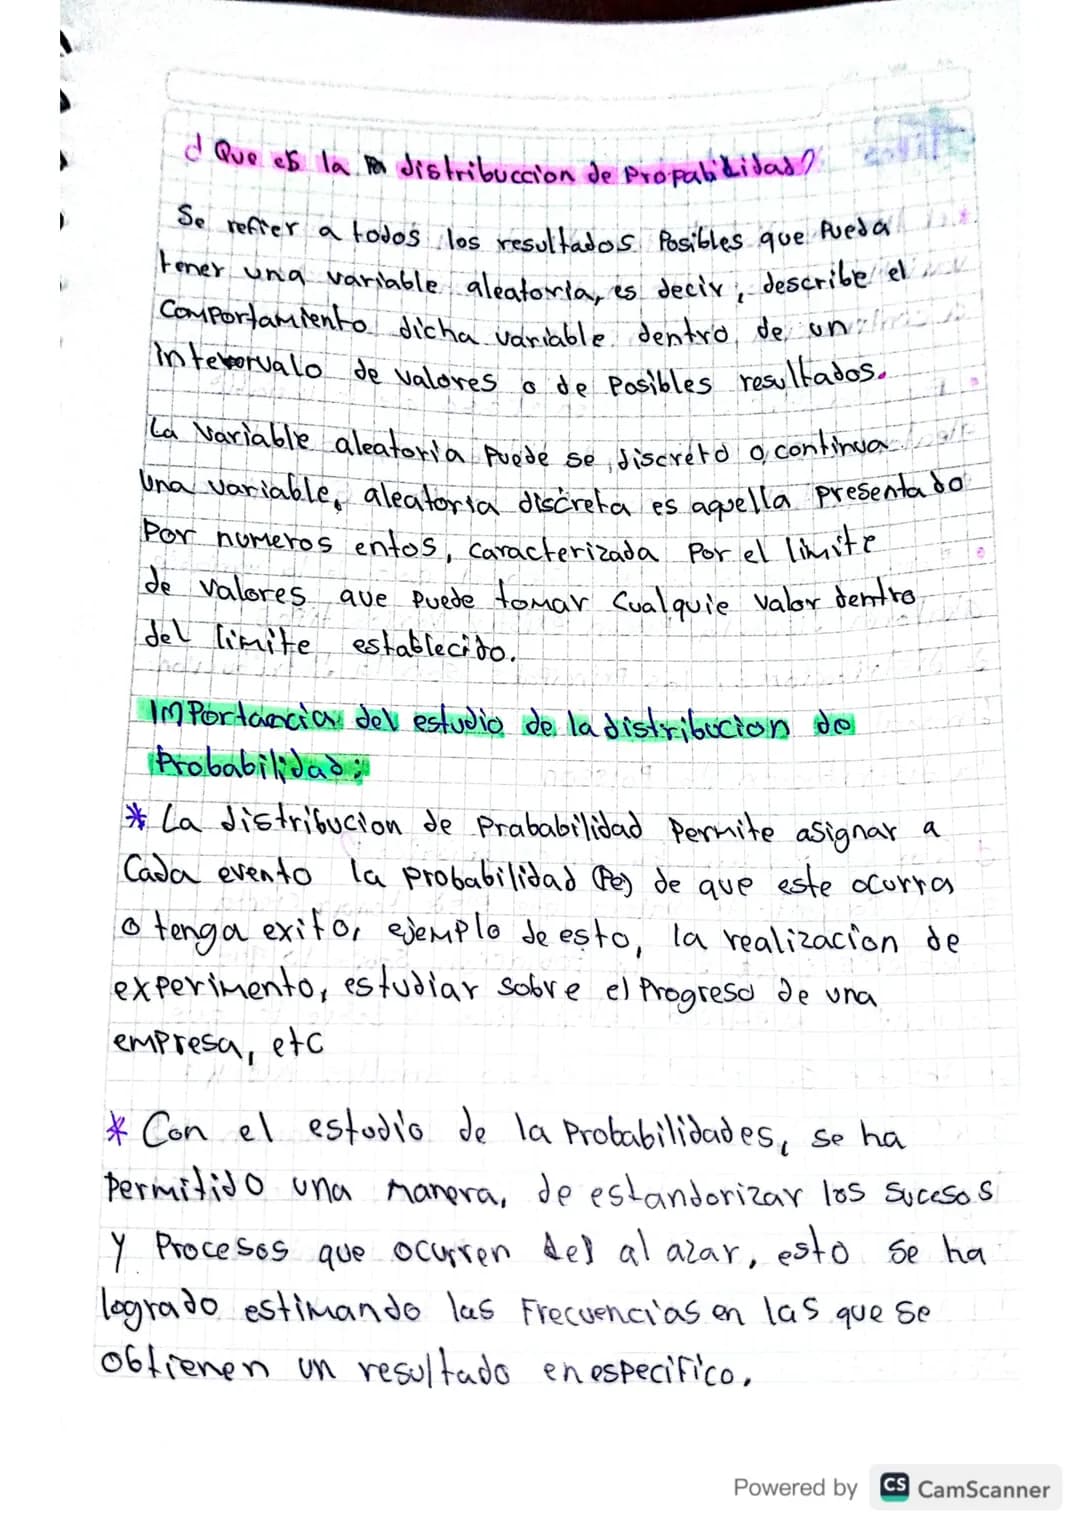 ¿Que es la distribuccion de Propabilidad?
Se refier a todos los resultados Posibles que Pueda
tener una variable aleatoria, es decir, describe el
Comportamiento dicha variable dentro de un
intervalo de valores o de Posibles resultados.
La Variable aleatoria Puede se discreto o continua
Una variable, aleatoria discreta es aquella presentado
Por numeros entos, caracterizada Por el limite
de valores que Puede tomar Cualquie valor dentro
del limite establecido.
IMPortancia del estudio de la distribucion de
Probabilidad;
* La distribucion de Prababilidad Permite asignar a
Cada evento la probabilidad (Pe) de que este ocurra
o tenga exito, ejemplo de esto, la realizacion de
experimento, estudiar sobre el Progreso de una
empresa, etc
* Con el estudio de la Probabilidades, se ha
Permitido una manera, de estandorizar los sucesos
y Procesos que ocurren al azar, esto se ha
logrado estimando las Frecuencias en las que se
obtienen un resultado en especifico.
Powered by CS CamScanner